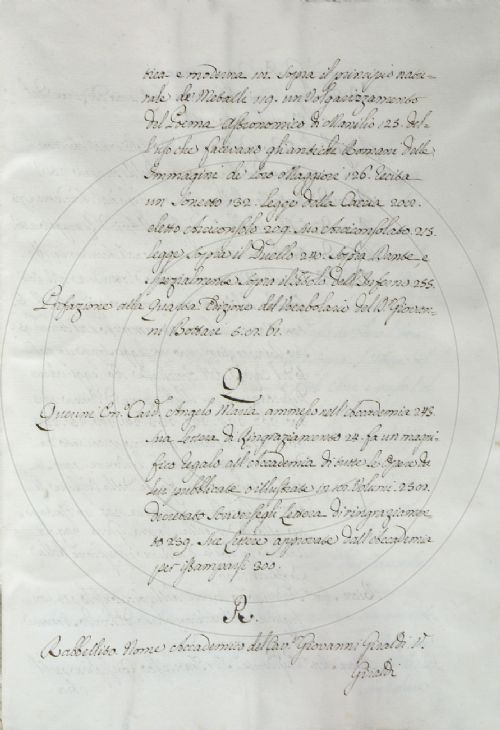 tica e moderna 111. Sopra il principio natu-
rale de Metalli 119. un Volgarizzamento
del Poema Astronomico di Manilio 125. del-
l'uso che facevano gli antichi Romani delle
Immagini de loro Maggiori 126. recita
un sonetto 132. legge della Caccia 202.
eletto Arciconsolo 209. suo Arciconsolato 213.
legge sopra il Duello 240. sopra Dante, e
specialmente sopra il titolo dell'Inferno 255.
Prefazione alla Quarta Edizione del Vocabolario del S.r Giovan-
ni Bottari 5. 61.
Q
Querini Em.o Card. Angelo Maria ammesso nell'Accademia 248.
sua lettera di Ringraziamento 24. fa un magni-
fico regalo all'Accademia di tutte le opere da
lui pubblicate o illustrate in Volumi 252.
decretato sendersegli lettera di ringraziamen-
to 259. sue lettere approvate dall'Accademia
per istamparsi 300.
R.
Rabbellito Nome Accademico del Cav.r Giovanni Giraldi V.
Giraldi